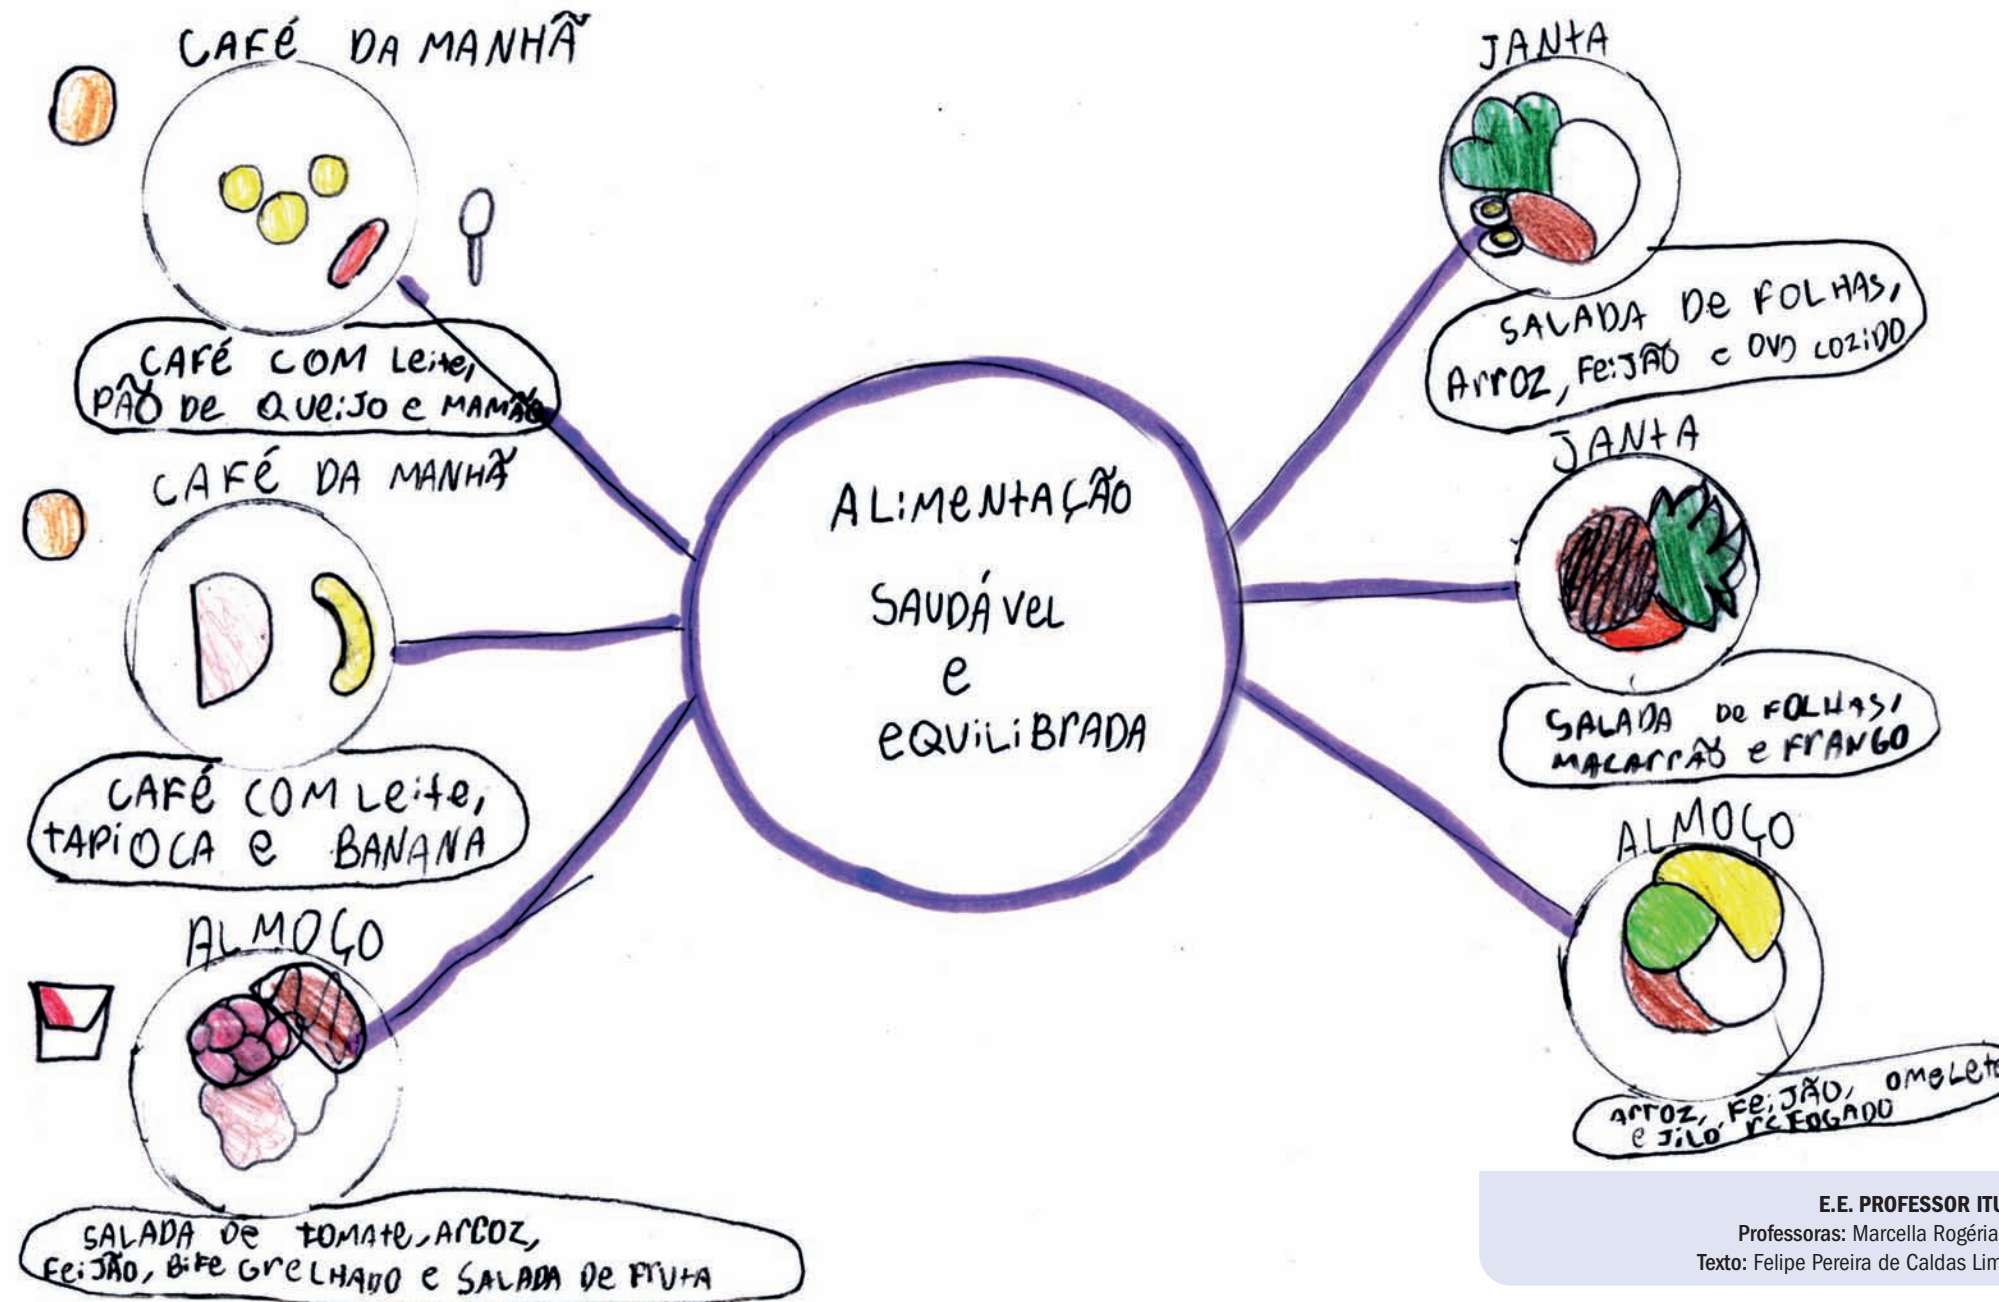 CAFÉ DA MANHÃ
CAFÉ COM Leite,
PÃO De QUeiJO e MAMÃO
CAFÉ DA MANHÃ
CAFÉ COM Leite,
tAPiOCA e BANANA
ALMOÇO
SALADA De tOMAte, ArrOZ,
FeiJÃO, BiFe GreLHADO e SALADA De FrUtA
ALiMeNtAÇÃO
SAUDÁVeL
e
eQUiLiBrADA
JANtA
SALADA De FOLHAS,
ArrOZ, FeiJÃO e OVO COZiDO
JANtA
SALADA De FOLHAS,
MACArrÃO e FrANGO
ALMOÇO
ArrOZ, FeiJÃO, OMeLete
e JiLÓ reFOGADO
E.E. PROFESSOR ITU
Professoras: Marcella Rogéria
Texto: Felipe Pereira de Caldas Lim